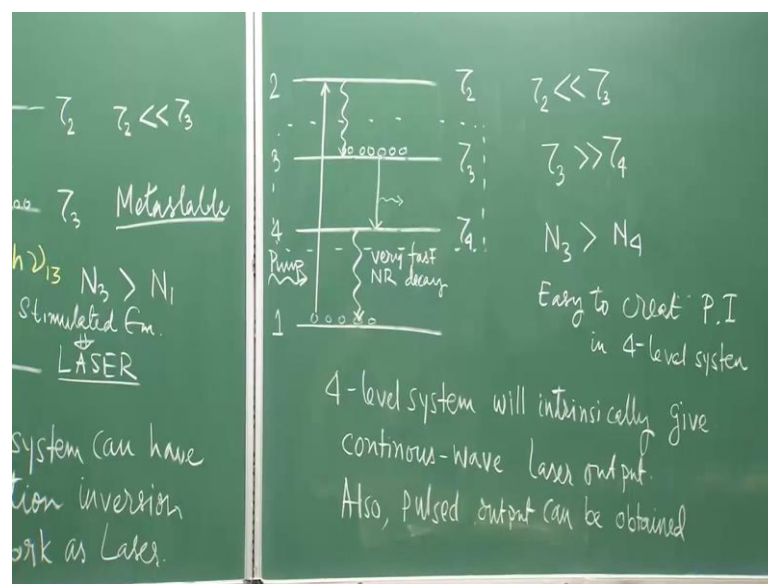 τ₂ τ₂ << τ₃
τ₃ Metastable
hν₁₃ N₃ > N₁
Stimulated Em.
⇓
LASER
system can have
tion inversion
ork as Laser.
2 τ₂ τ₂ << τ₃
3 τ₃ τ₃ >> τ₄
4 τ₄ N₃ > N₄
Pump very fast
NR decay
1
Easy to creat P.I
in 4-level system
4-level system will intrinsically give
continous-wave Laser output.
Also, Pulsed output can be obtained